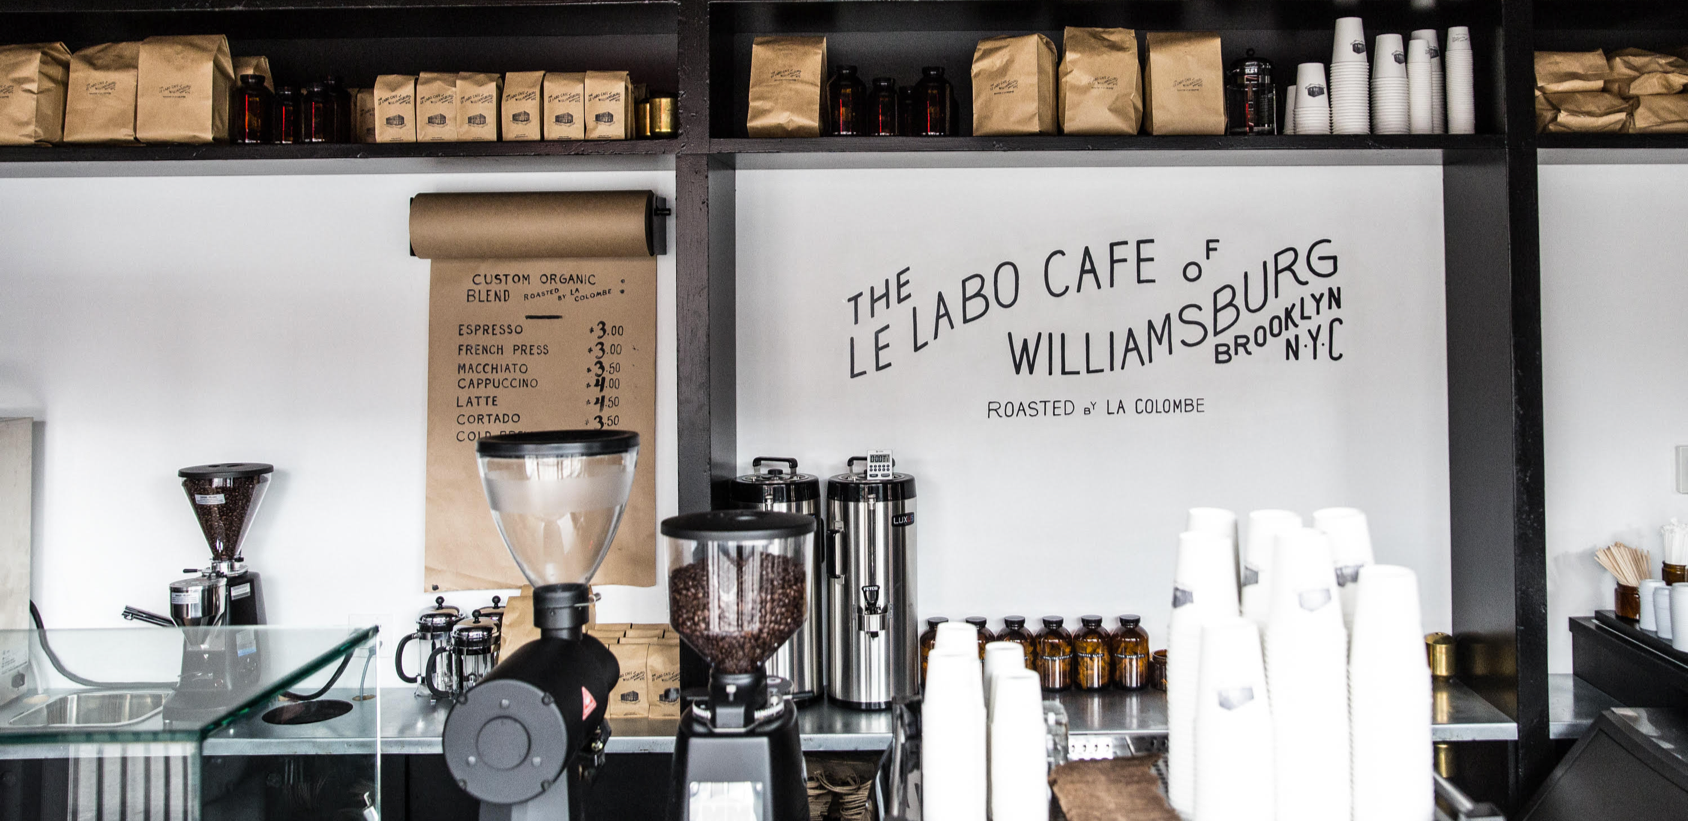 CUSTOM ORGANIC
BLEND ROASTED BY LA COLOMBE
ESPRESSO $3.00
FRENCH PRESS $3.00
MACCHIATO $3.50
CAPPUCCINO $4.00
LATTE $4.50
CORTADO $3.50
COLD
THE
LE LABO CAFE OF
WILLIAMSBURG
BROOKLYN
N.Y.C
ROASTED BY LA COLOMBE
FETCO